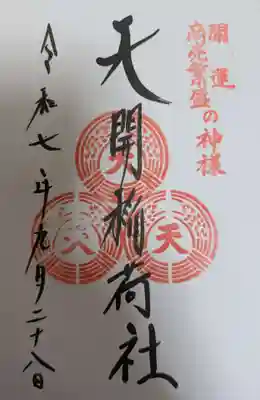 開運
商売繁盛の神様
天開稲荷社
令和七年九月二十八日
天